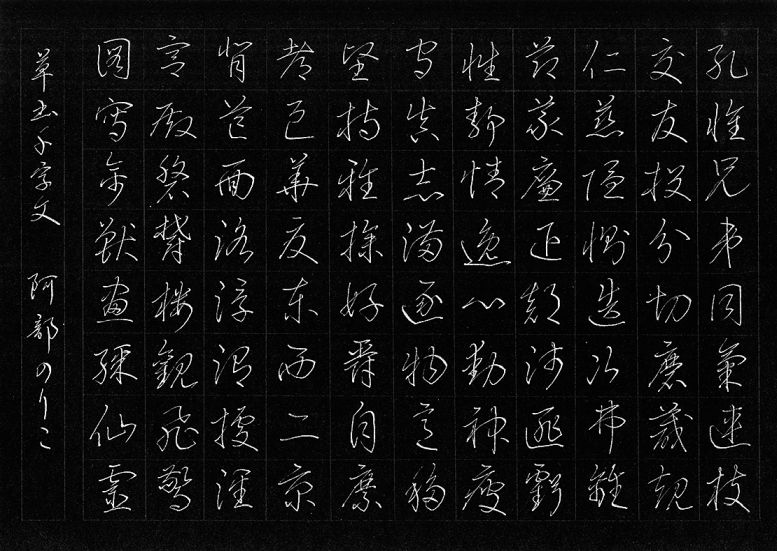 孔懐兄弟同氣連枝
交友投分切磨箴規
仁慈隠惻造次弗離
節義廉退顛沛匪虧
性静情逸心動神疲
守真志満逐物意移
堅持雅操好爵自縻
都邑華夏東西二京
背芒面洛浮渭據涇
宮殿盤鬱楼観飛驚
図写禽獣画綵仙霊
草書千字文 阿部のりこ